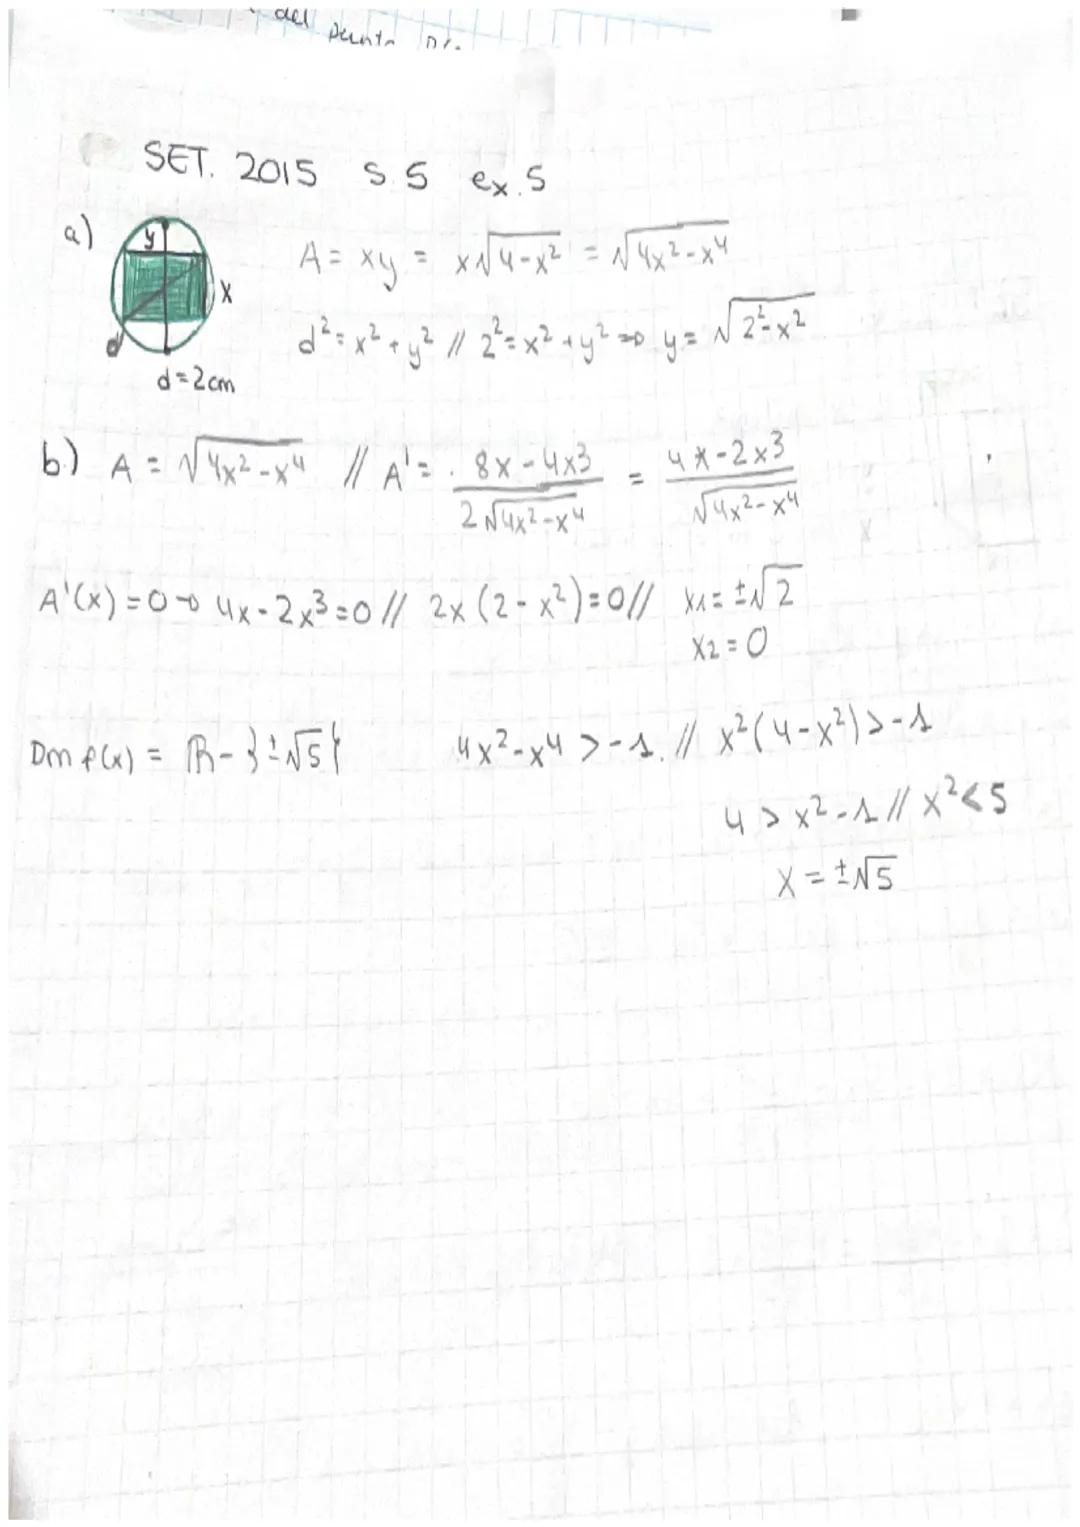 del
punto
SET. 2015 S.5 ex.5
a) y x d d=2cm
A = xy = x√4-x² = √4x²-x⁴
d² = x² + y² // 2² = x² + y² ⇒ y = √2²-x²
b) A = √4x²-x⁴ // A' = 8x-4x³ / 2√4x²-x⁴ = 4x-2x³ / √4x²-x⁴
A'(x) = 0 → 4x-2x³ = 0 // 2x(2-x²) = 0 // x1 = ±√2
x2 = 0
Dm f(x) = ℝ - }±√5{ 4x²-x⁴ > -1 // x²(4-x²) > -1
4 > x²-1 // x² < 5
x = ±√5